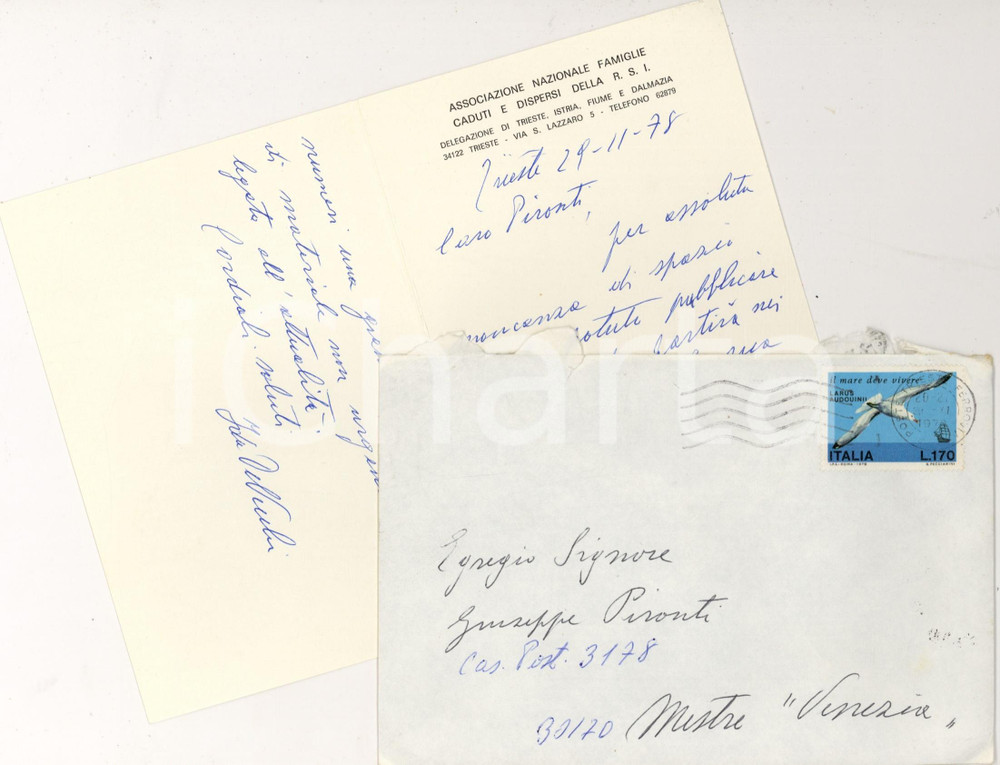 ASSOCIAZIONE NAZIONALE FAMIGLIE
CADUTI E DISPERSI DELLA R. S. I.
DELEGAZIONE DI TRIESTE, ISTRIA, FIUME E DALMAZIA
34122 TRIESTE - VIA S. LAZZARO 5 - TELEFONO 62879
Trieste 29-11-78
Caro Pironti,
per assoluta
mancanza di spazio
potuto pubblicare
partirà nei
numeri una
di materiale non
legato all'attualità.
Cordiali saluti
il mare deve vivere
LARUS
AUDOUINII
ITALIA L.170
I.P.S.-ROMA-1978
Egregio Signore
Giuseppe Pironti
Cas. Post. 3178
30170 Mestre "Venezia"